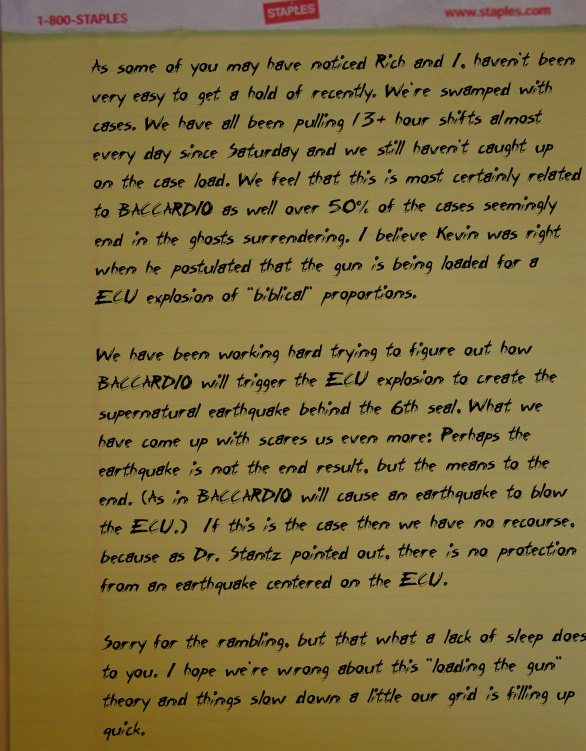 1-800-STAPLES
STAPLES
www.staples.com
As some of you may have noticed Rich and I, haven't been
very easy to get a hold of recently. We're swamped with
cases. We have all been pulling 13+ hour shifts almost
every day since Saturday and we still haven't caught up
on the case load. We feel that this is most certainly related
to BACCARDIO as well over 50% of the cases seemingly
end in the ghosts surrendering. I believe Kevin was right
when he postulated that the gun is being loaded for a
ECU explosion of "biblical" proportions.
We have been working hard trying to figure out how
BACCARDIO will trigger the ECU explosion to create the
supernatural earthquake behind the 6th seal. What we
have come up with scares us even more: Perhaps the
earthquake is not the end result, but the means to the
end. (As in BACCARDIO will cause an earthquake to blow
the ECU.) If this is the case then we have no recourse,
because as Dr. Stantz pointed out, there is no protection
from an earthquake centered on the ECU.
Sorry for the rambling, but that what a lack of sleep does
to you. I hope we're wrong about this "loading the gun"
theory and things slow down a little our grid is filling up
quick.